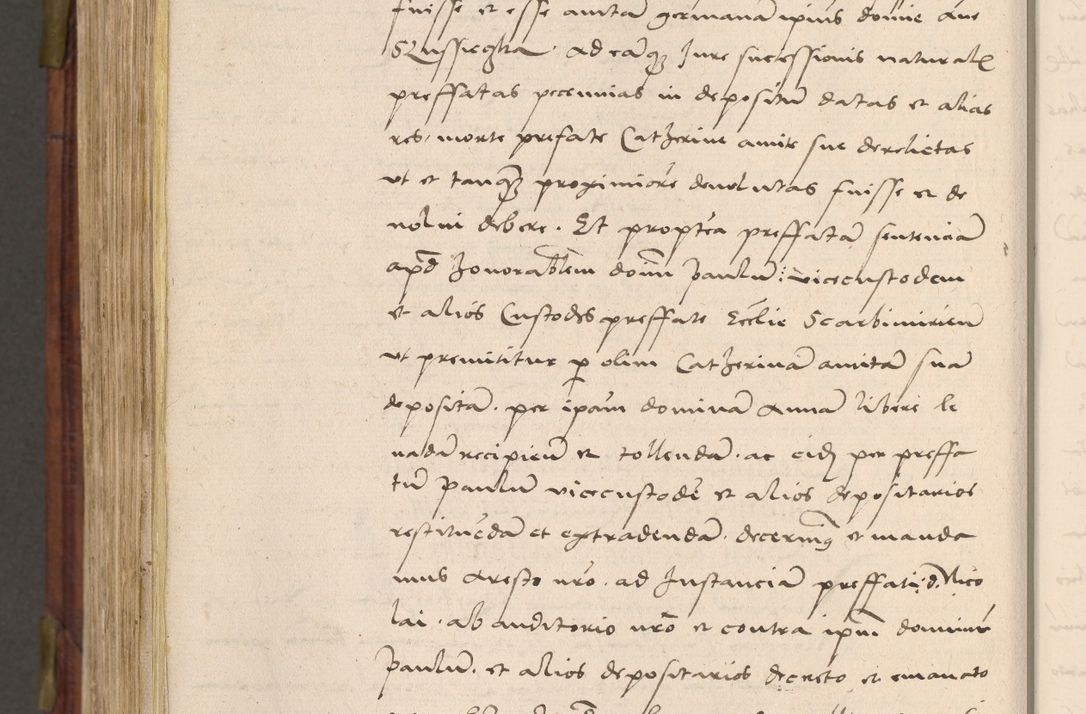 fuisse et esse amitam germanam ipius domine Anne
Slussieglia. ad eamq3 Jure successionis naturale
preffatas pecunias in depositum datas et alias
res, morte prefate Catherine amite sue derelictas
ut et tanq3 proximiore devolutas fuisse et de
volui debere. Et proptea preffatam sentenciam
apd honorablem domm paulum: vicecustodem
et alios Custodes preffate Ecclie Scarbimirien
ut premittitur p olim Catherinam amitam suam
depositam. per ipam dominam Annam libere le
vadam recipiem et tollendam. ac eid per preffa
tum paulum vicecustode et alios depositarios
restituedam et extradendam. decernimq et manda
mus Aresto nro. ad Instanciam preffati d. Nico
lai. ab auditorio nro et contra ipm dominum
paulum. et alios depositarios decreto et emanato